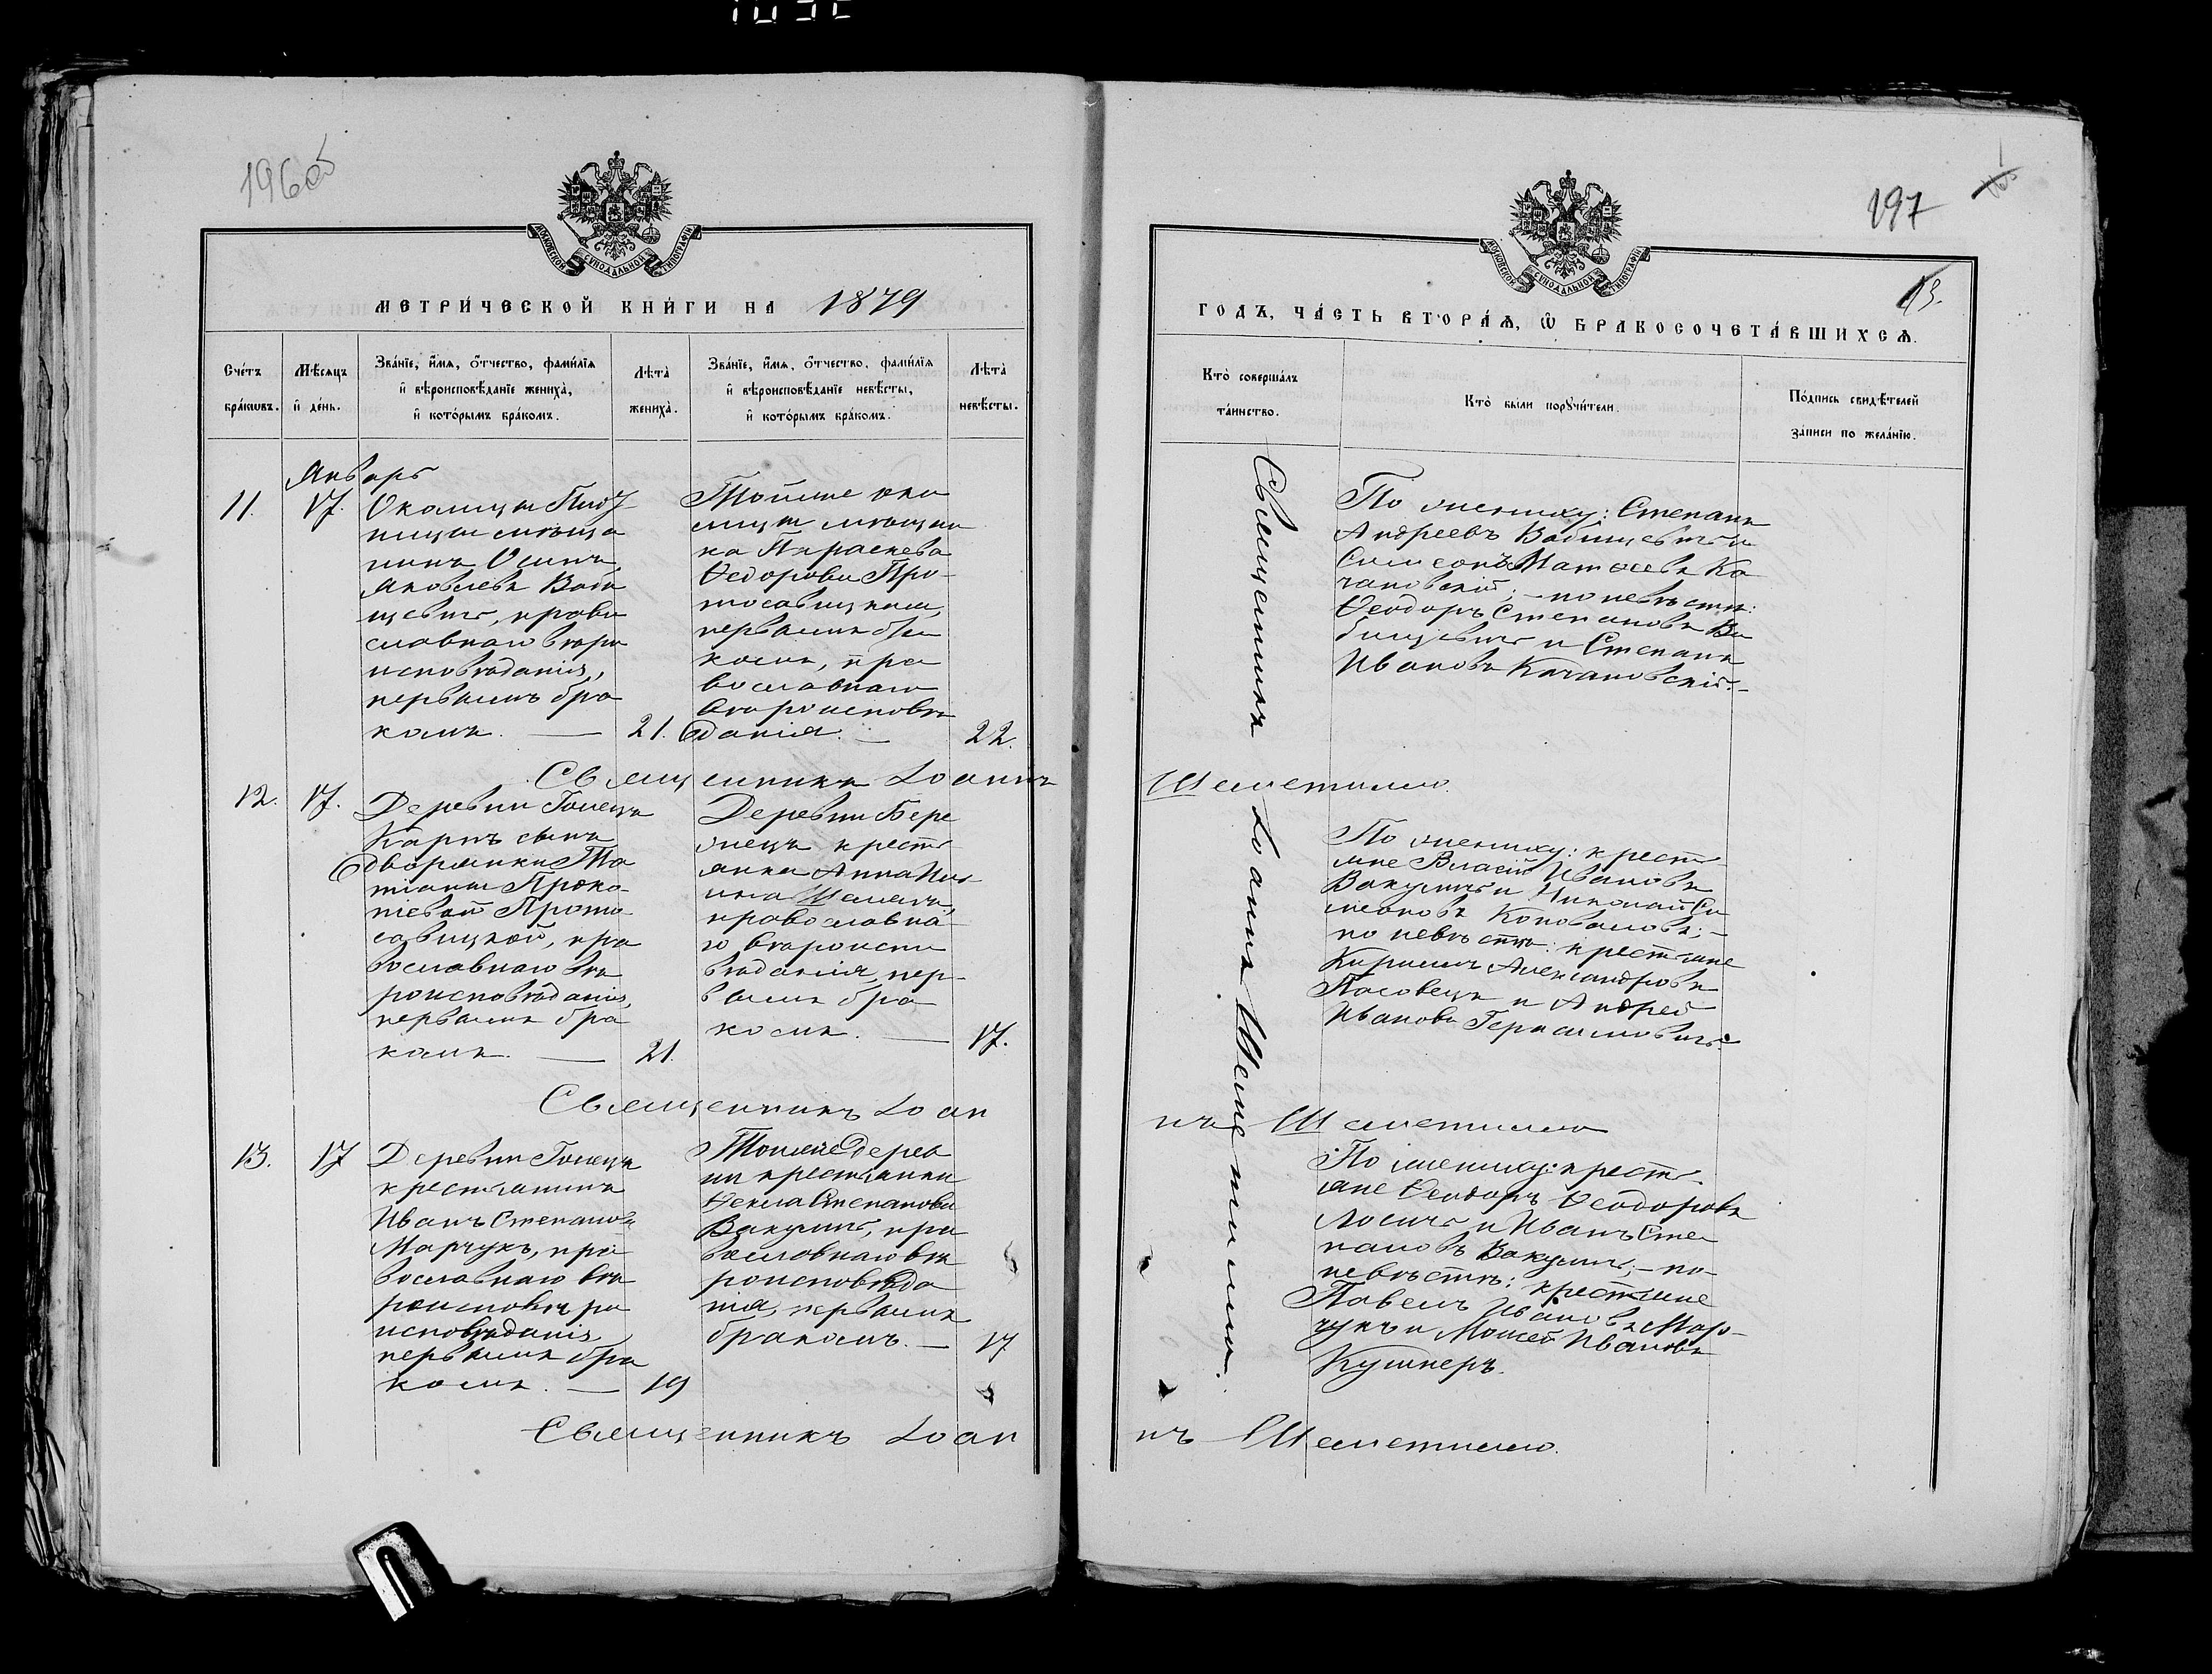 196об
197
13.
МОСКОВСКОЙ СѴНОДАЛЬНОЙ ТИПОГРАФІИ
МЕТРИ́ЧЕСКОЙ КНИ́ГИ НА 1879
Сче́тъ бра́кѡвъ.
Мѣ́сяцъ и҆ де́нь.
Зва́нїе, и҆́мя, ѻ҆́тчество, фами́лїя
и҆ вѣроисповѣ́данїе жениха̀,
и҆ кото́рымъ бра́комъ.
Лѣ́та жениха̀.
Зва́нїе, и҆́мя, ѻ҆́тчество, фами́лїя
и҆ вѣроисповѣ́данїе невѣ́сты,
и҆ кото́рымъ бра́комъ.
Лѣ́та невѣ́сты.
Январь
11.
17.
Околицы
мѣща
нинъ Осипъ
Яковлевъ Баби
щевичъ, право
славнаго вѣро
исповѣданія,
первымъ бра
комъ. — 21.
Тойже око
лицы мѣщан
ка Параскева
Ѳедорова Про-
тосавицкая,
первымъ бра
комъ, пра
вославнаго
вѣроисповѣ
данія. — 22.
Священникъ Іоаннъ
12.
17.
Деревни Голецъ
Карпъ сынъ
дворянки Та
тіаны Проко-
піевой Прото
савицкой, пра
вославнаго вѣ
роисповѣданія,
первымъ бра
комъ. — 21.
Деревни Бере
жецъ кресть
янка Анна Иль
ина
православна
го вѣроиспо
вѣданія, пер-
вымъ бра
комъ. — 17.
Священникъ Іоан
13.
17
Деревни Голецъ
крестьянинъ
Иванъ Степановъ
Марчукъ, пра
вославнаго вѣ
роисповѣро
исповѣданія,
первымъ бра
комъ. — 19
Тойже дерев
ни крестьянка
Ѳекла Степанова
Вакуличъ, пра
вославнаго вѣ
роисповѣда
нія, первымъ
бракомъ. — 17
Священникъ Іоан
МОСКОВСКОЙ СѴНОДАЛЬНОЙ ТИПОГРАФІИ
ГОДЪ, ЧА́СТЬ ВТОРА́Я, Ѡ҆ БРАКОСОЧЕТА́ВШИХСЯ.
Кто̀ соверша́лъ
та́инство.
Кто̀ бы́ли порꙋчи́тели.
По́дпись свидѣ́телей
за́писи по жела́нїю.
Священникъ Іоаннъ Шеметилло.
По жениху: Степанъ
Андреевъ Бабищевичъ и
Симеонъ Матѳеевъ Ка
чановскій; — по невѣстѣ:
Ѳеодоръ Степановъ Ба
бищевичъ и Степанъ
Ивановъ Качановскій. —
Шеметилло.
По жениху: кресть
яне Власій Ивановъ
Вакуличъ и Николай Си
меоновъ Коноваловъ; —
по невѣстѣ: крестьяне
Кириллъ Александровъ
Пасовецъ и Андрей
Ивановъ Герасимовичъ.
нъ Шеметилло
По жениху: кресть
яне Ѳеодоръ Ѳеодоровъ
Лосичъ и Иванъ Сте
пановъ Вакуличъ; — по
невѣстѣ: крестьяне
Павелъ Ивановъ Мар-
чукъ и Моисей Ивановъ
Кушнеръ.
нъ Шеметилло.